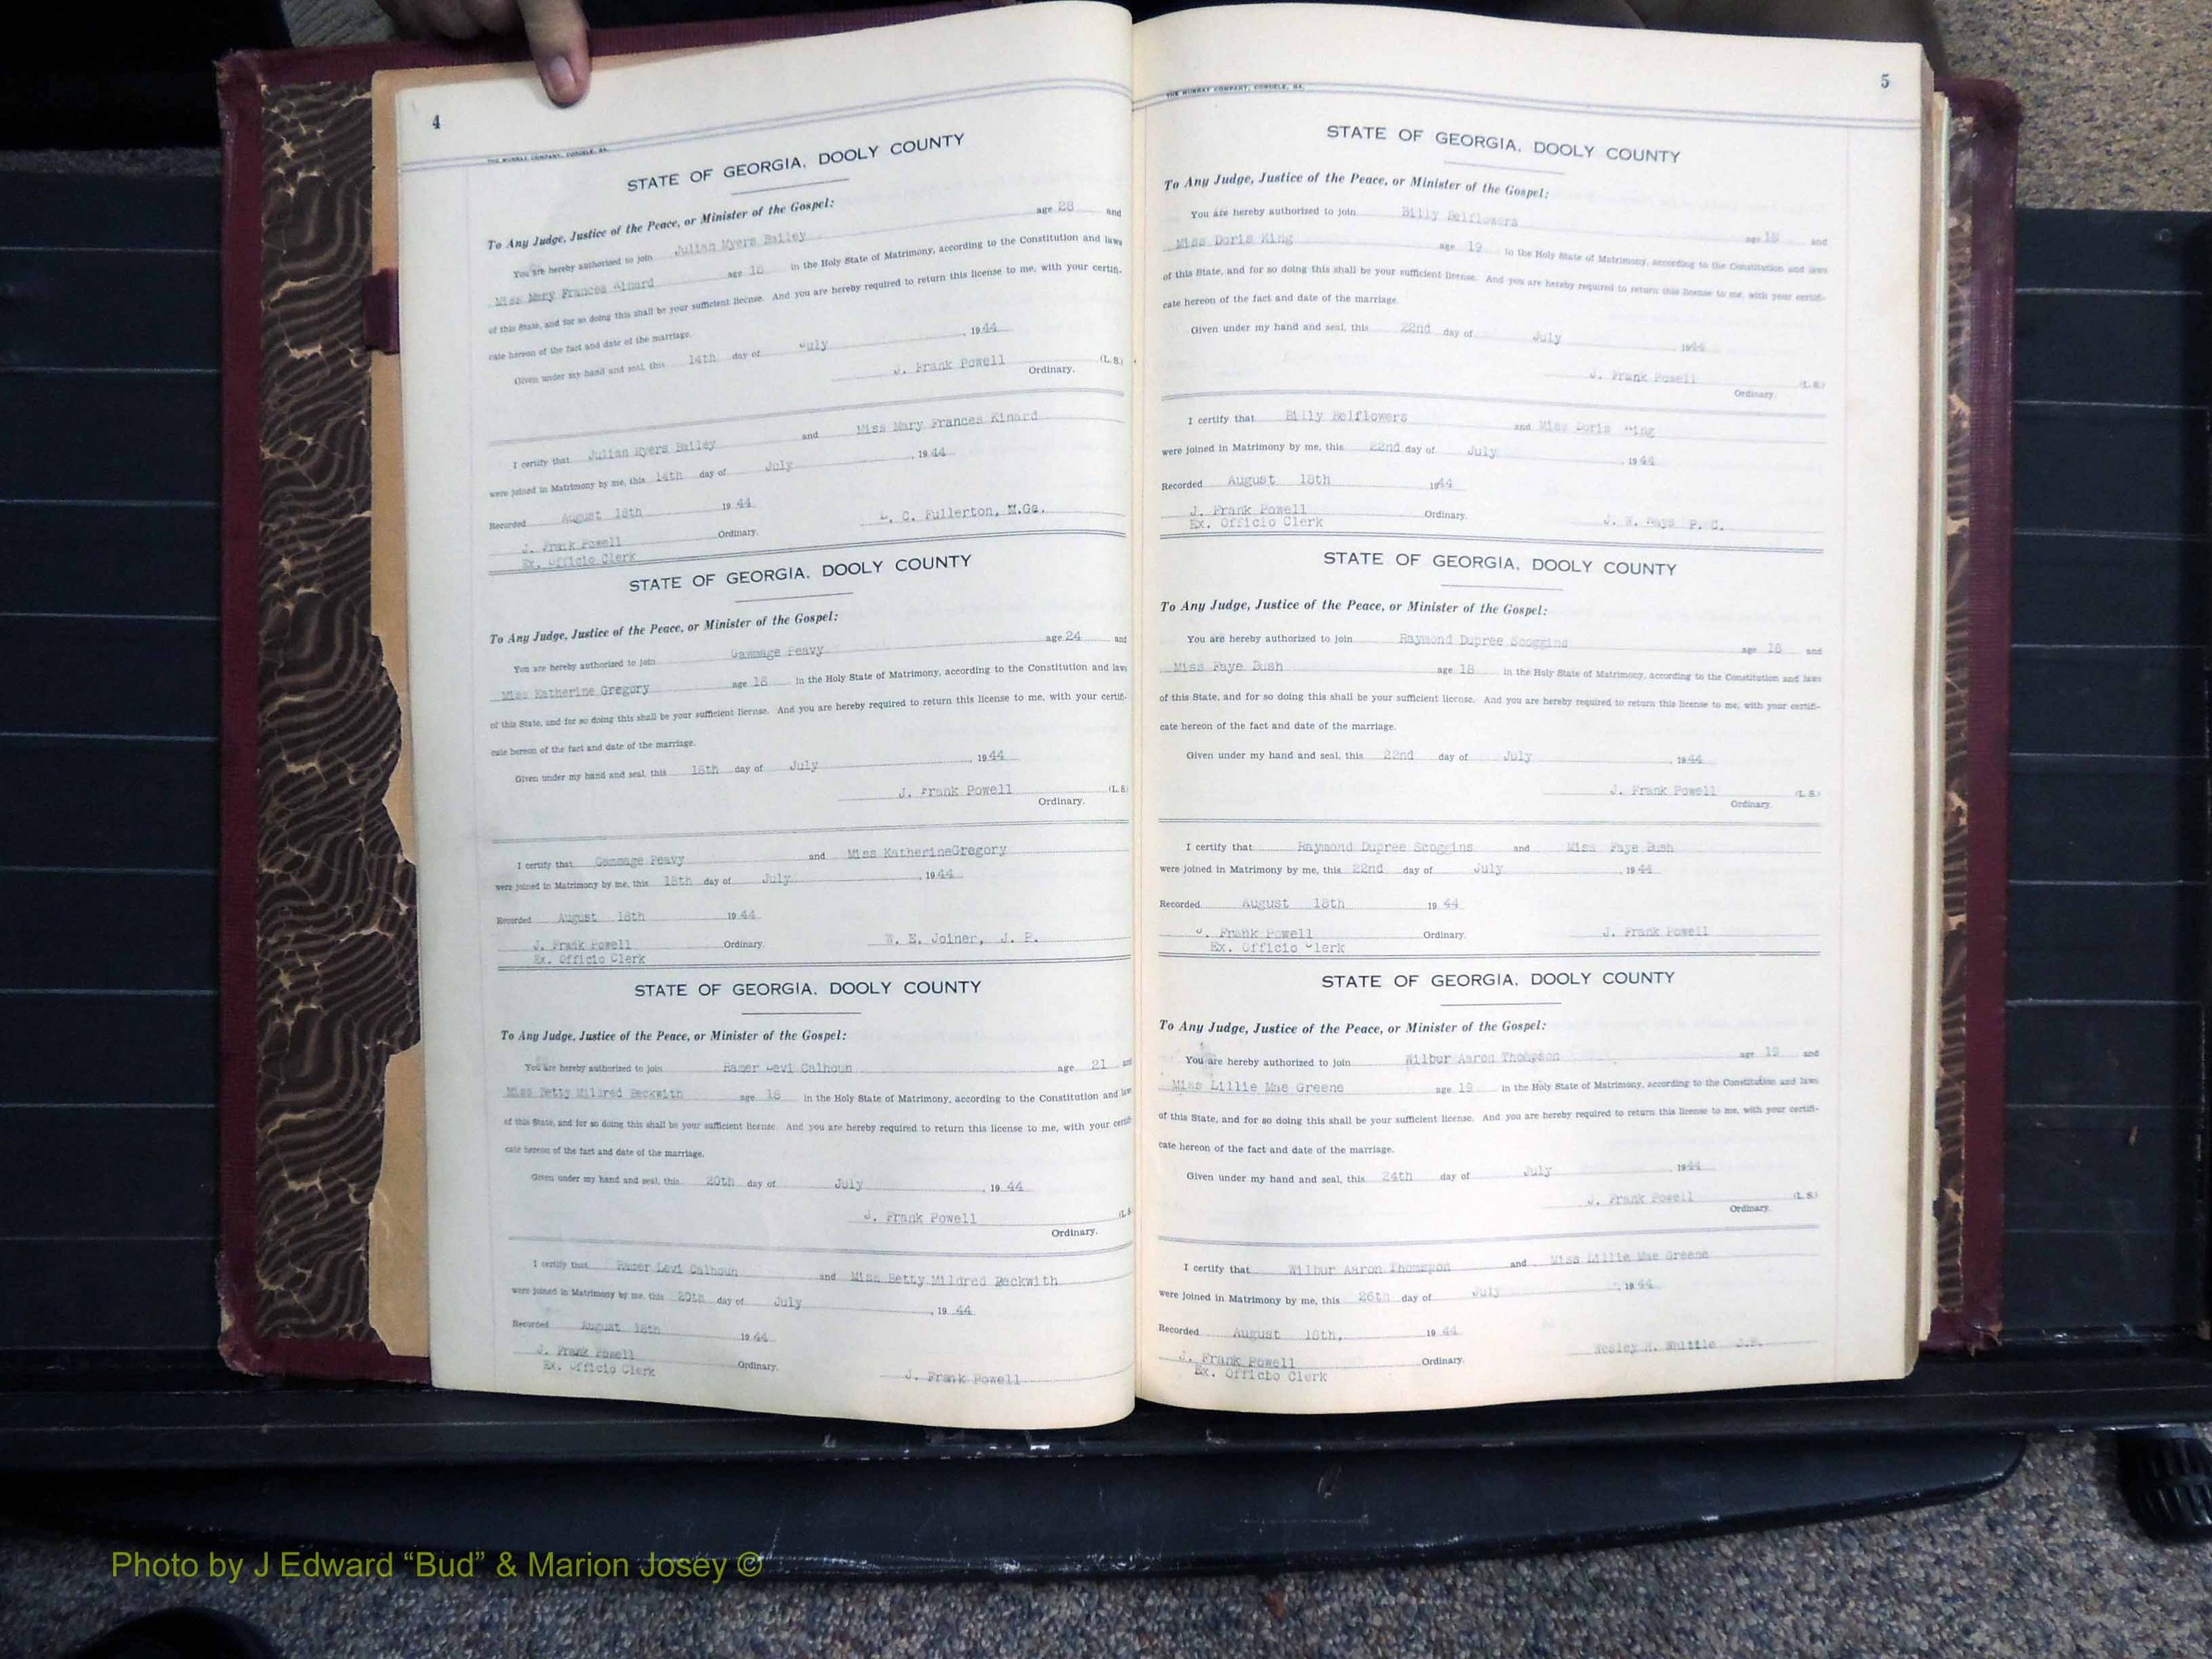 4
THE MURRAY COMPANY, CORDELE, GA.
STATE OF GEORGIA, DOOLY COUNTY
To Any Judge, Justice of the Peace, or Minister of the Gospel:
You are hereby authorized to join Julian Myers Bailey age 28 and
Miss Mary Frances Kinard age 18 in the Holy State of Matrimony, according to the Constitution and laws
of this State, and for so doing this shall be your sufficient license. And you are hereby required to return this license to me, with your certifi-
cate hereon of the fact and date of the marriage.
Given under my hand and seal, this 14th day of July, 1944
J. Frank Powell (L. S.)
Ordinary.
I certify that Julian Myers Bailey and Miss Mary Frances Kinard
were joined in Matrimony by me, this 14th day of July, 1944
Recorded August 18th 1944
J. Frank Powell Ordinary. C. Fullerton, M.Go.
Ex. Officio Clerk
STATE OF GEORGIA, DOOLY COUNTY
To Any Judge, Justice of the Peace, or Minister of the Gospel:
You are hereby authorized to join Gammage Peavy age 24 and
Miss Katherine Gregory age 18 in the Holy State of Matrimony, according to the Constitution and laws
of this State, and for so doing this shall be your sufficient license. And you are hereby required to return this license to me, with your certifi-
cate hereon of the fact and date of the marriage.
Given under my hand and seal, this 18th day of July, 1944
J. Frank Powell (L. S.)
Ordinary.
I certify that Gammage Peavy and Miss KatherineGregory
were joined in Matrimony by me, this 18th day of July, 1944
Recorded August 18th 1944
J. Frank Powell Ordinary. W. E. Joiner, J. P.
Ex. Officio Clerk
STATE OF GEORGIA, DOOLY COUNTY
To Any Judge, Justice of the Peace, or Minister of the Gospel:
You are hereby authorized to join Levi Calhoun age 21 and
Miss Betty Mildred Beckwith age 18 in the Holy State of Matrimony, according to the Constitution and law
of this State, and for so doing this shall be your sufficient license. And you are hereby required to return this license to me, with your certifi
cate hereon of the fact and date of the marriage.
Given under my hand and seal, this 20th day of July, 1944
J. Frank Powell (L. S.
Ordinary.
I certify that Levi Calhoun and Miss Betty Mildred Beckwith
were joined in Matrimony by me, this 20th day of July, 1944
Recorded August 18th 1944
J. Frank Powell Ordinary.
Ex. Officio Clerk J. Frank Powell
5
THE MURRAY COMPANY, CORDELE, GA.
STATE OF GEORGIA, DOOLY COUNTY
To Any Judge, Justice of the Peace, or Minister of the Gospel:
You are hereby authorized to join Billy Belflowers age 18 and
Miss Doris King age 19 in the Holy State of Matrimony, according to the Constitution and laws
of this State, and for so doing this shall be your sufficient license. And you are hereby required to return this license to me, with your certifi-
cate hereon of the fact and date of the marriage.
Given under my hand and seal, this 22nd day of July, 1944
J. Frank Powell (L. S.)
Ordinary.
I certify that Billy Belflowers and Miss Doris King
were joined in Matrimony by me, this 22nd day of July, 1944
Recorded August 18th 1944
J. Frank Powell Ordinary.
Ex. Officio Clerk J. W. Mays
STATE OF GEORGIA, DOOLY COUNTY
To Any Judge, Justice of the Peace, or Minister of the Gospel:
You are hereby authorized to join Raymond Dupree Scoggins age 18 and
Miss Faye Bush age 18 in the Holy State of Matrimony, according to the Constitution and laws
of this State, and for so doing this shall be your sufficient license. And you are hereby required to return this license to me, with your certifi-
cate hereon of the fact and date of the marriage.
Given under my hand and seal, this 22nd day of July, 1944
J. Frank Powell (L. S.)
Ordinary.
I certify that Raymond Dupree Scoggins and Miss Faye Bush
were joined in Matrimony by me, this 22nd day of July, 1944
Recorded August 18th 1944
J. Frank Powell Ordinary. J. Frank Powell
Ex. Officio Clerk
STATE OF GEORGIA, DOOLY COUNTY
To Any Judge, Justice of the Peace, or Minister of the Gospel:
You are hereby authorized to join Wilbur Aaron Thompson age 19 and
Miss Lillie Mae Greene age 19 in the Holy State of Matrimony, according to the Constitution and laws
of this State, and for so doing this shall be your sufficient license. And you are hereby required to return this license to me, with your certifi-
cate hereon of the fact and date of the marriage.
Given under my hand and seal, this 24th day of July, 1944
J. Frank Powell (L. S.)
Ordinary.
I certify that Wilbur Aaron Thompson and Miss Lillie Mae Greene
were joined in Matrimony by me, this 26th day of July, 1944
Recorded August 18th, 1944
J. Frank Powell Ordinary. Wesley H. Whittle J.P.
Ex. Officbo Clerk
Photo by J Edward “Bud” & Marion Josey ©